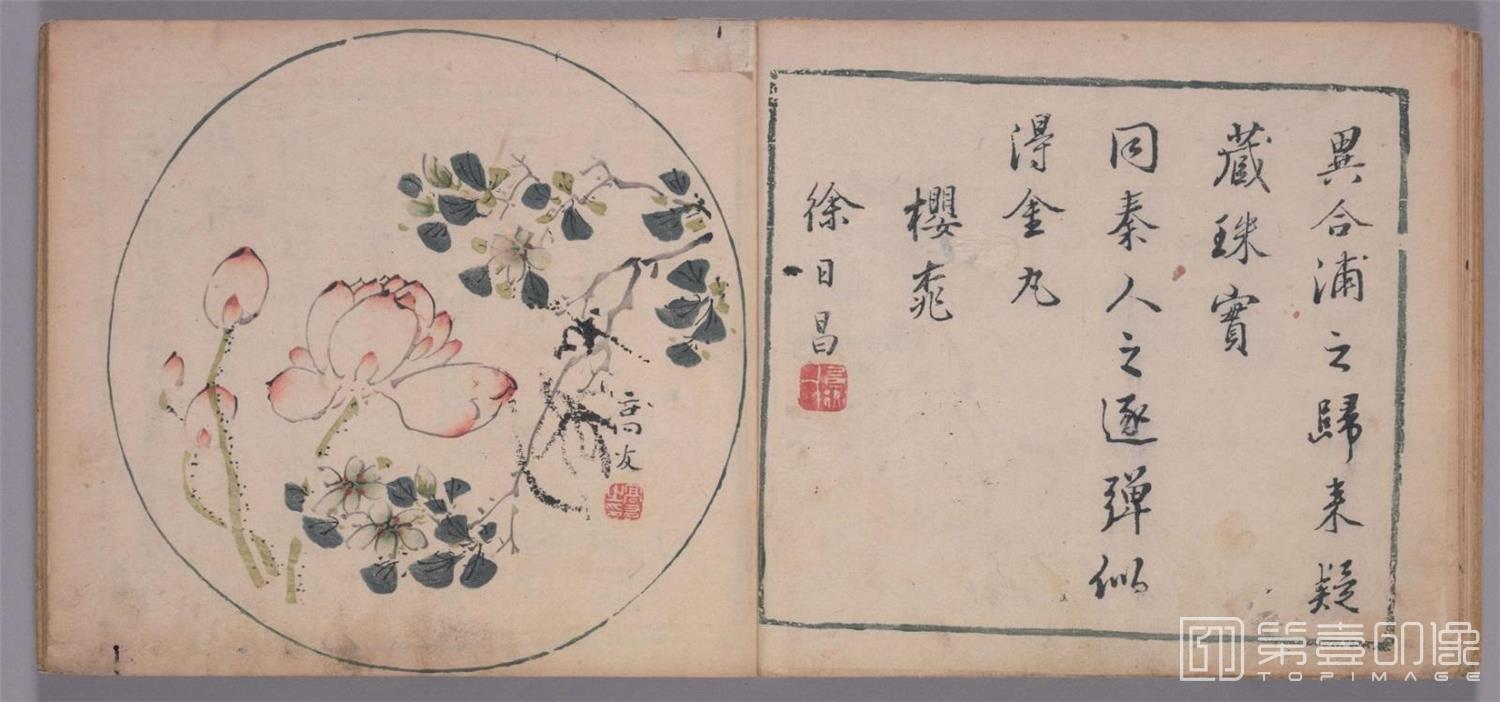 異合浦之歸来疑
藏珠實
同秦人之逐彈似
得金丸
櫻桃
徐日昌
高友
第壹印像
TOPIMAGE